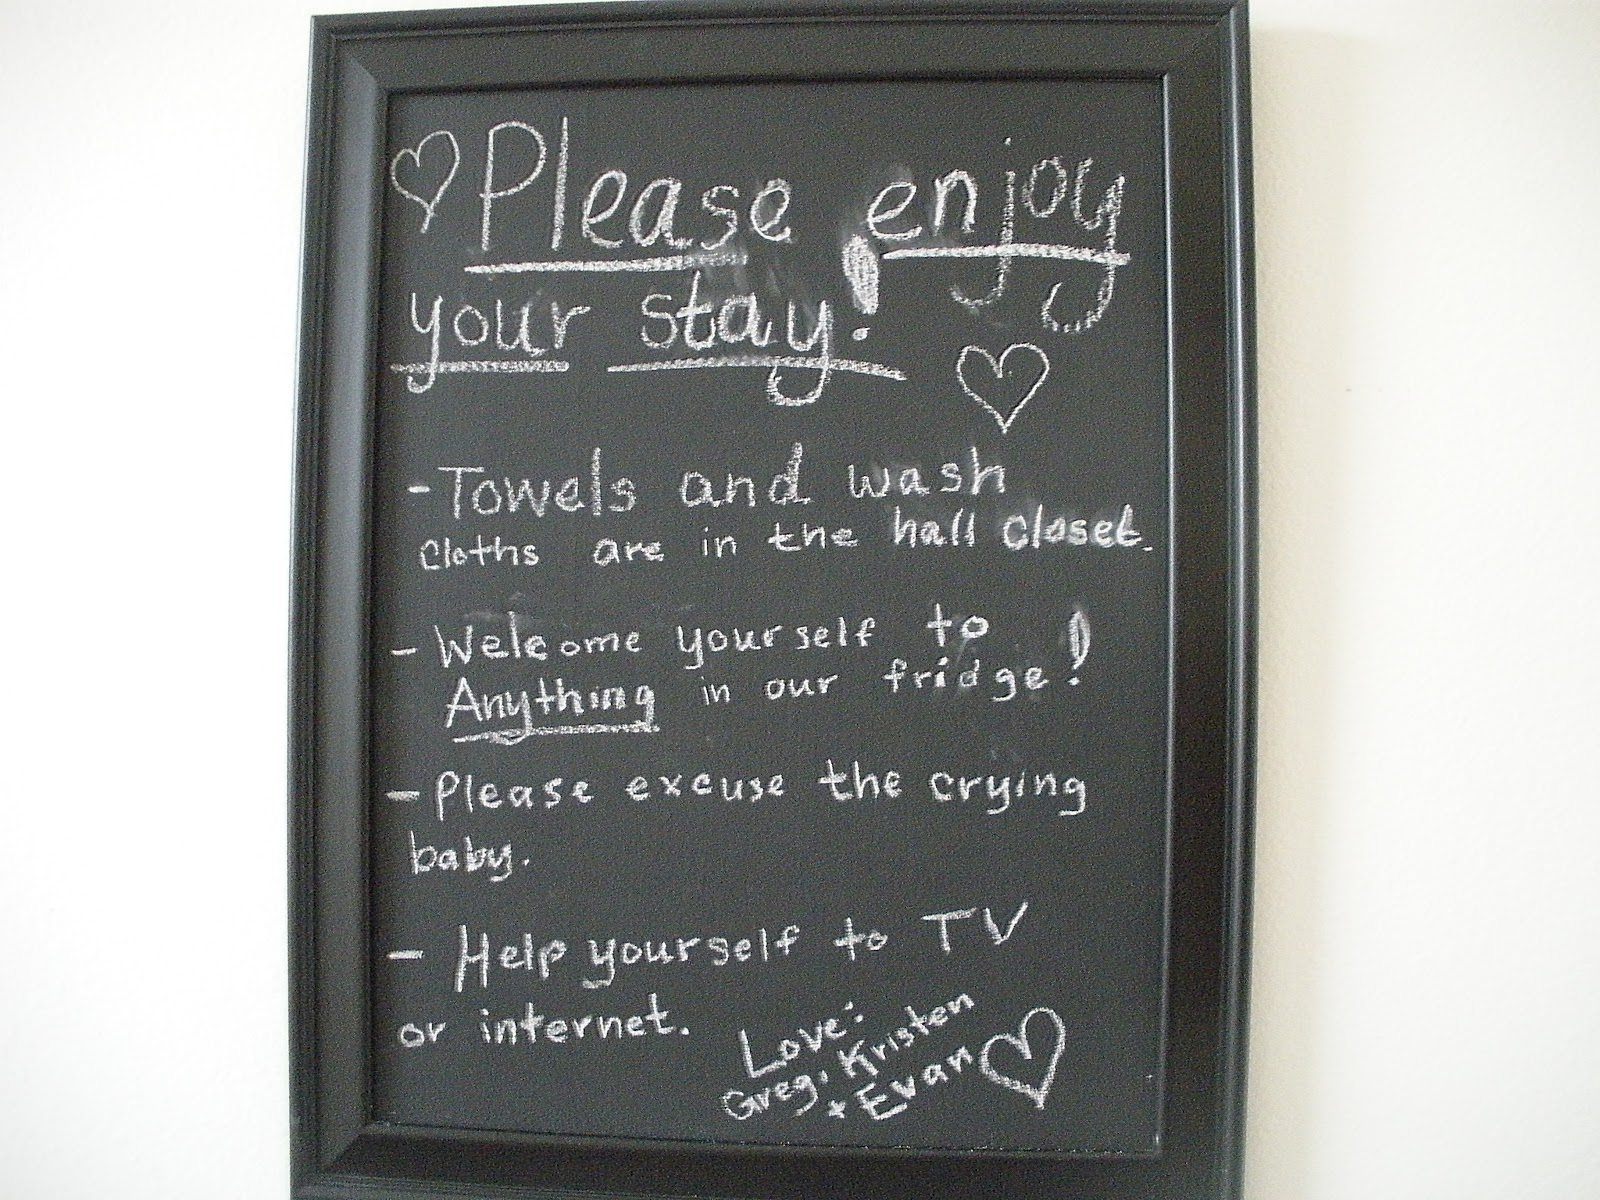 Please enjoy
your stay!
-Towels and wash
cloths are in the hall closet.
- Welcome yourself to
Anything in our fridge!
- Please excuse the crying
baby.
- Help yourself to TV
or internet.
Love:
Greg, Kristen
+ Evan